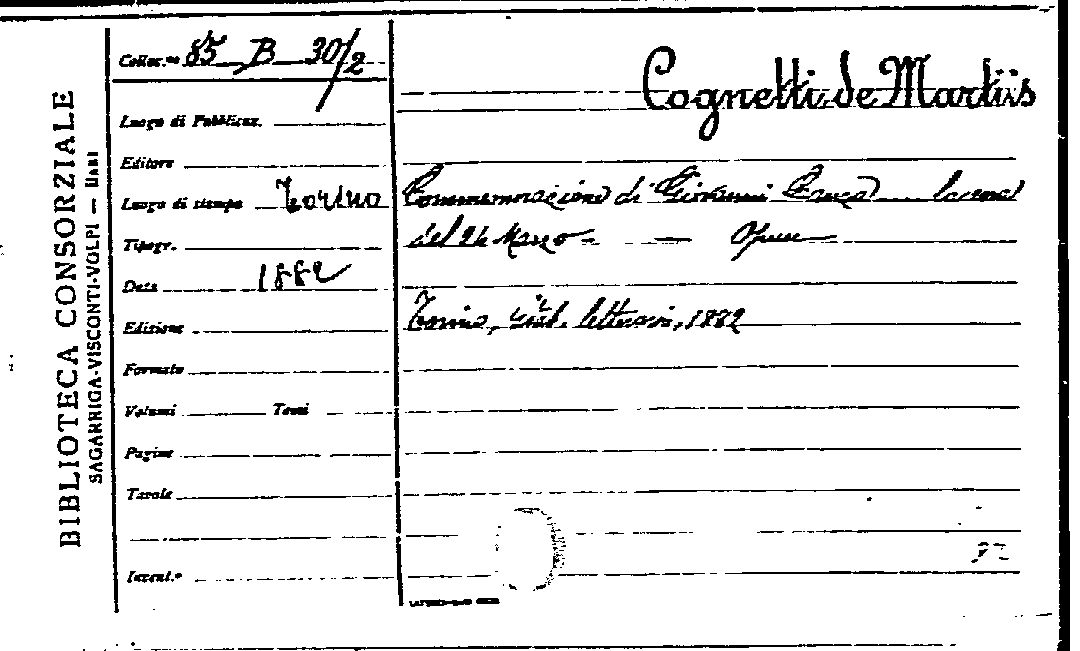 BIBLIOTECA CONSORZIALE
SAGARRIGA-VISCONTI-VOLPI — BARI
Colloc.ne 85 B 30/2
Luogo di Pubblicaz.
Editore
Luogo di stampa Torino
Tipogr.
Data 1882
Edizione
Formato
Volumi Tomi
Pagine
Tavole
Invent.o
Cognetti de Martiis
Commemorazione di Giovanni Lanza
del 24 Marzo - — Opusc
Torino, letterari, 1882
92